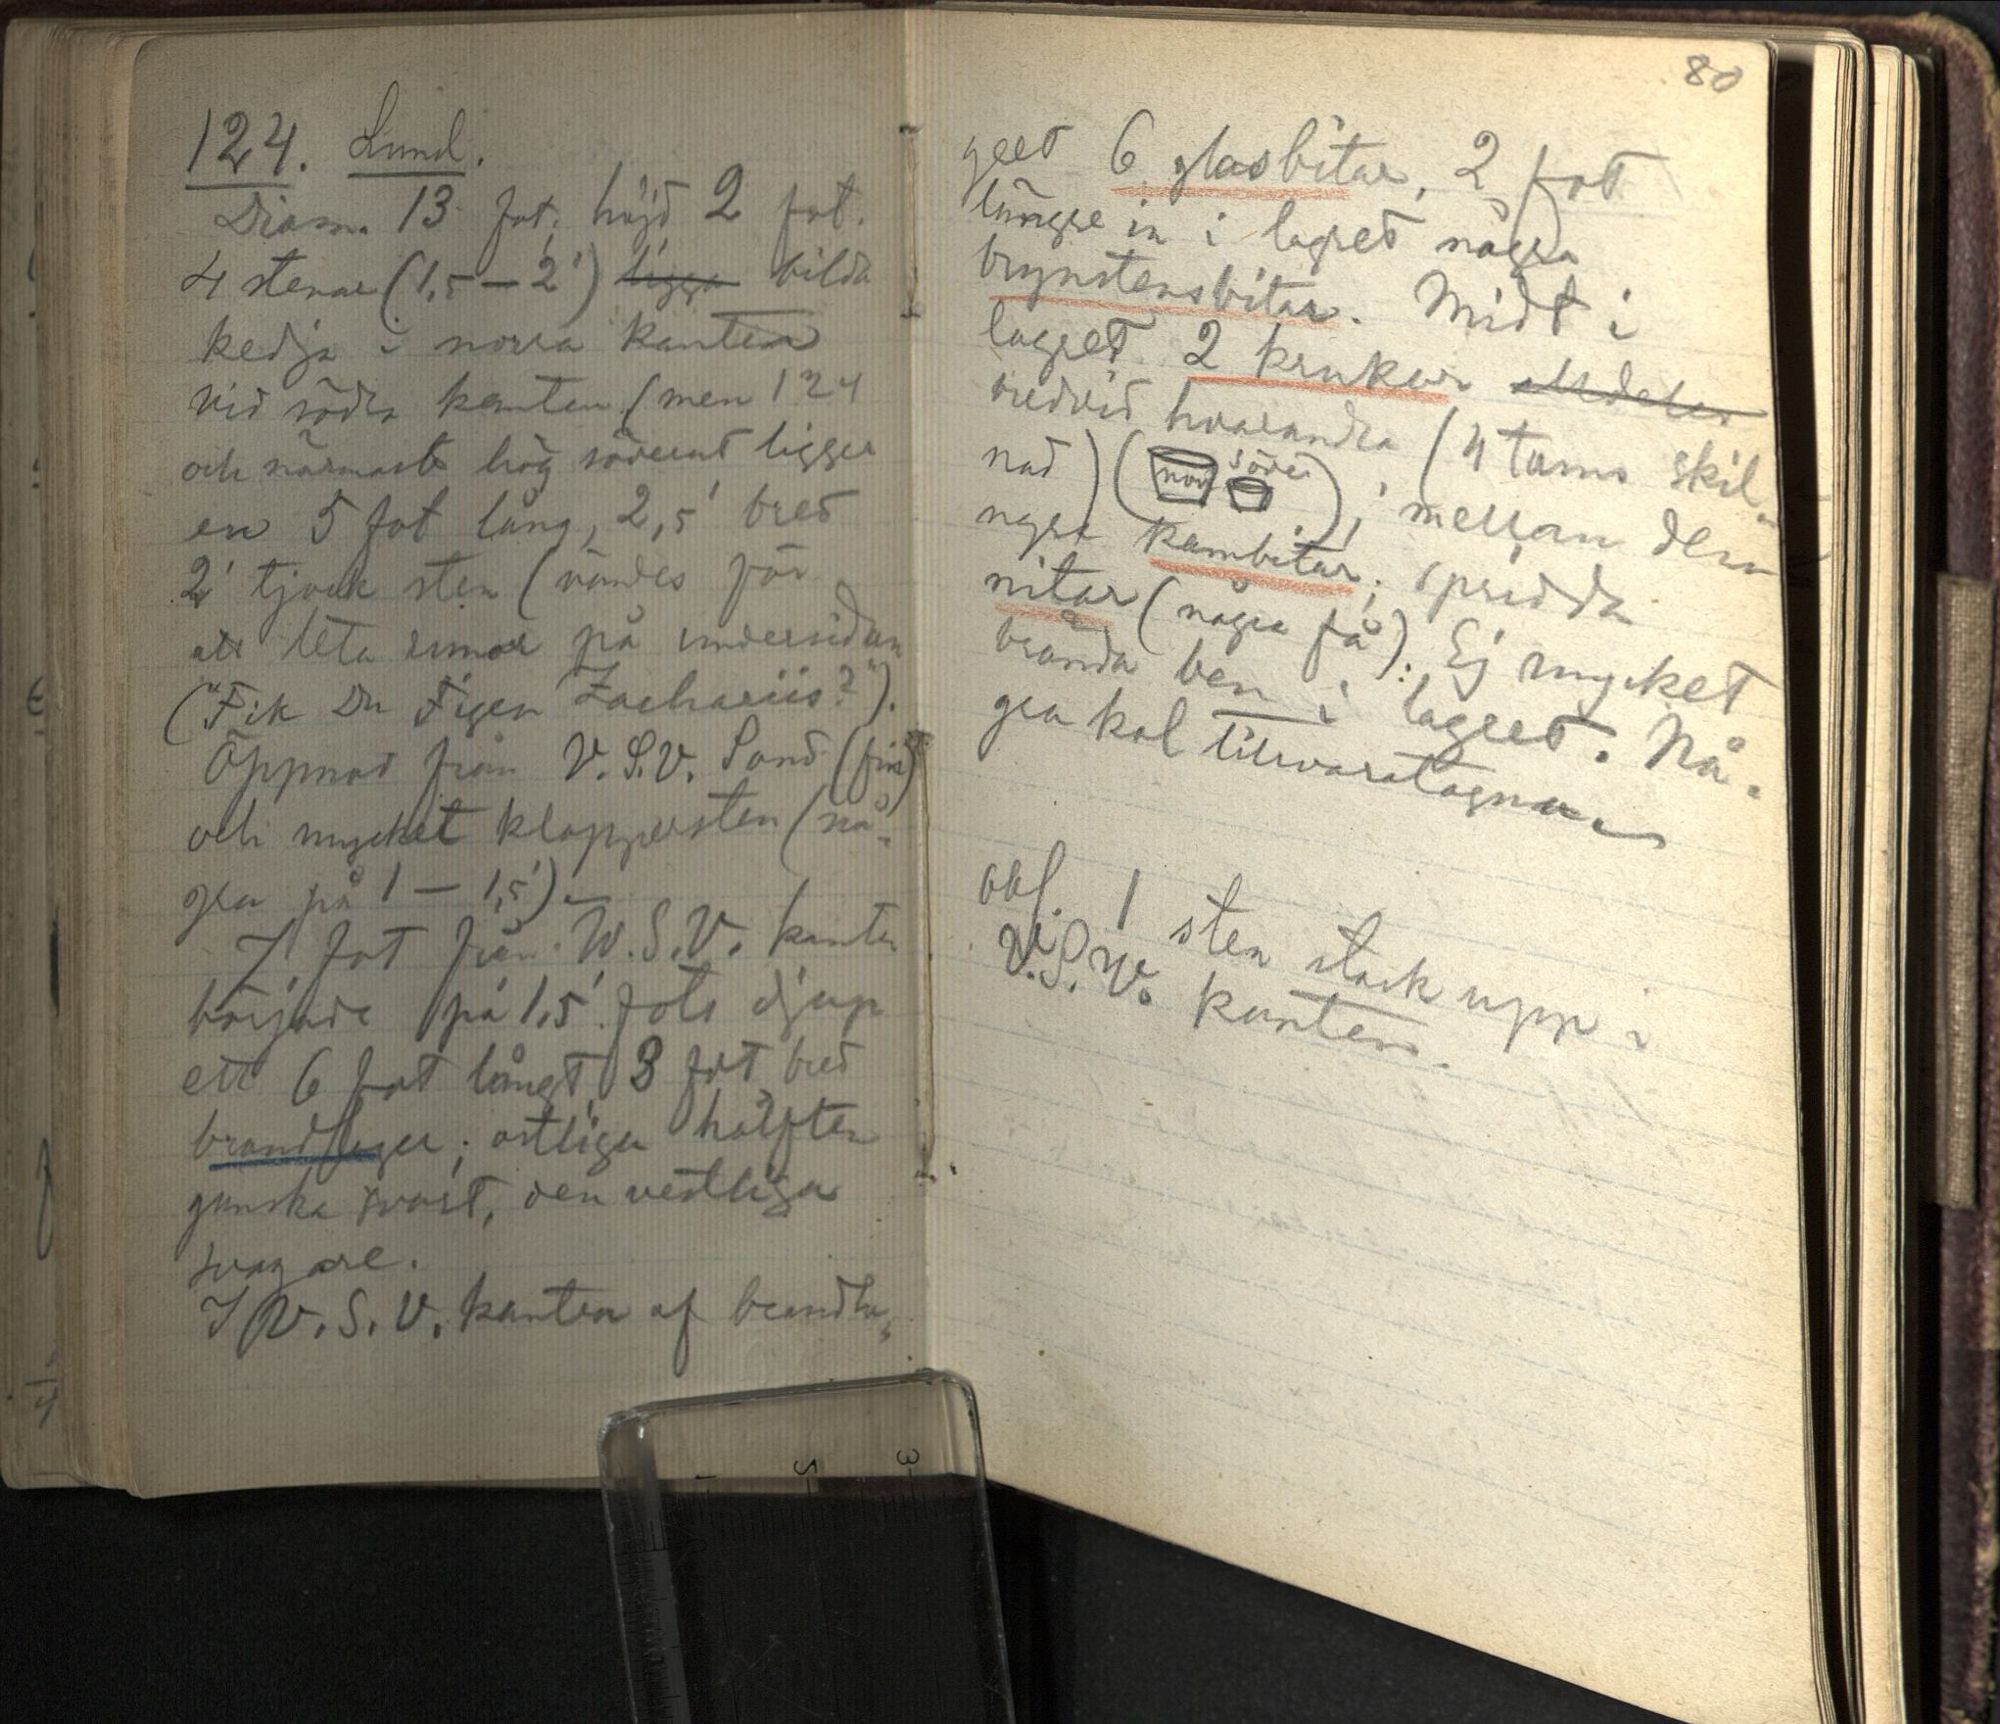 124. Lund.
Diam. 13 fot, höjd 2 fot.
4 stenar (1,5 — 2') ligga bilda
kedja i norra kanten
vid södra kanten (men 124
och närmaste hög söderut ligger
en 5 fot lång, 2,5' bred
2' tjock sten (vändes för
att leta runor på undersidan
("Fik Du Figen Zachariis?").
Öppnad från V.S.V. Sand (fin)
och mycket klappersten (nå-
gra på 1 — 1,5').
7 fot från W.S.V. kanten
började på 1,5' fots djup
ett 6 fot långt 3 fot bred
brandlager; östliga hälften
ganska svart, den vestliga
svagare.
I V.S.V. kanten af brandla-
80
gret 6 glasbitar, 2 fot
längre in i lagret några
brynstensbitar. Midt i
lagret 2 krukor alldeles
bredvid hvarandra (4 tums skil-
nad) (norr söder); mellan dem
några kambitar; spridda
nitar (några få). Ej mycket
brända ben i lagret. Nå-
gra kol tillvaratagna.
obs. 1 sten stack upp i
V.S.V. kanten.